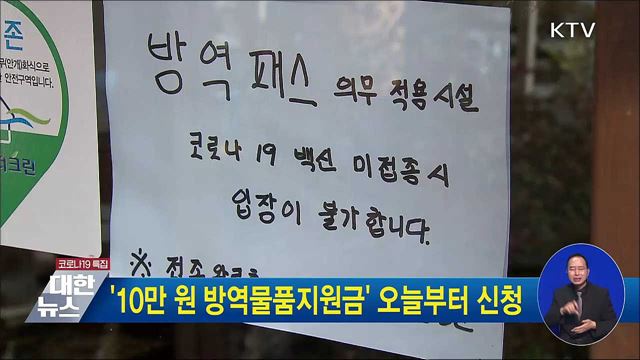 KTV
존
무(안개)화식으로
안전구역입니다.
크린
방역패스 의무 적용시설
코로나 19 백신 미접종 시
입장이 불가합니다.
※
코로나19 특집
대한
뉴스
'10만 원 방역물품지원금' 오늘부터 신청